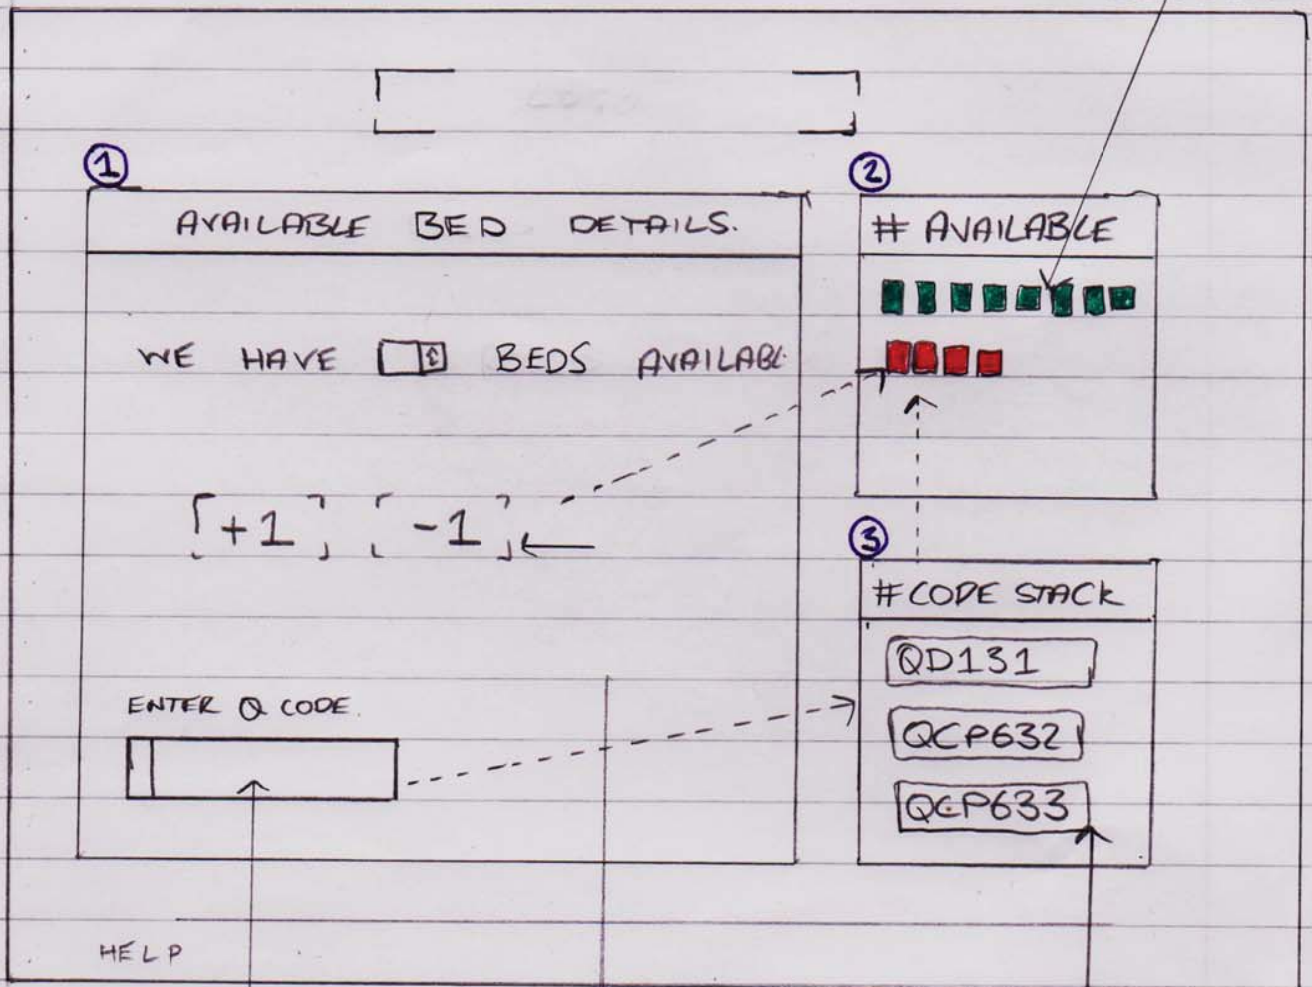 1
AVAILABLE BED DETAILS.
WE HAVE BEDS AVAILABL
+1 -1
ENTER Q CODE.
2
# AVAILABLE
3
# CODE STACK
QD131
QCP632
QCP633
HELP